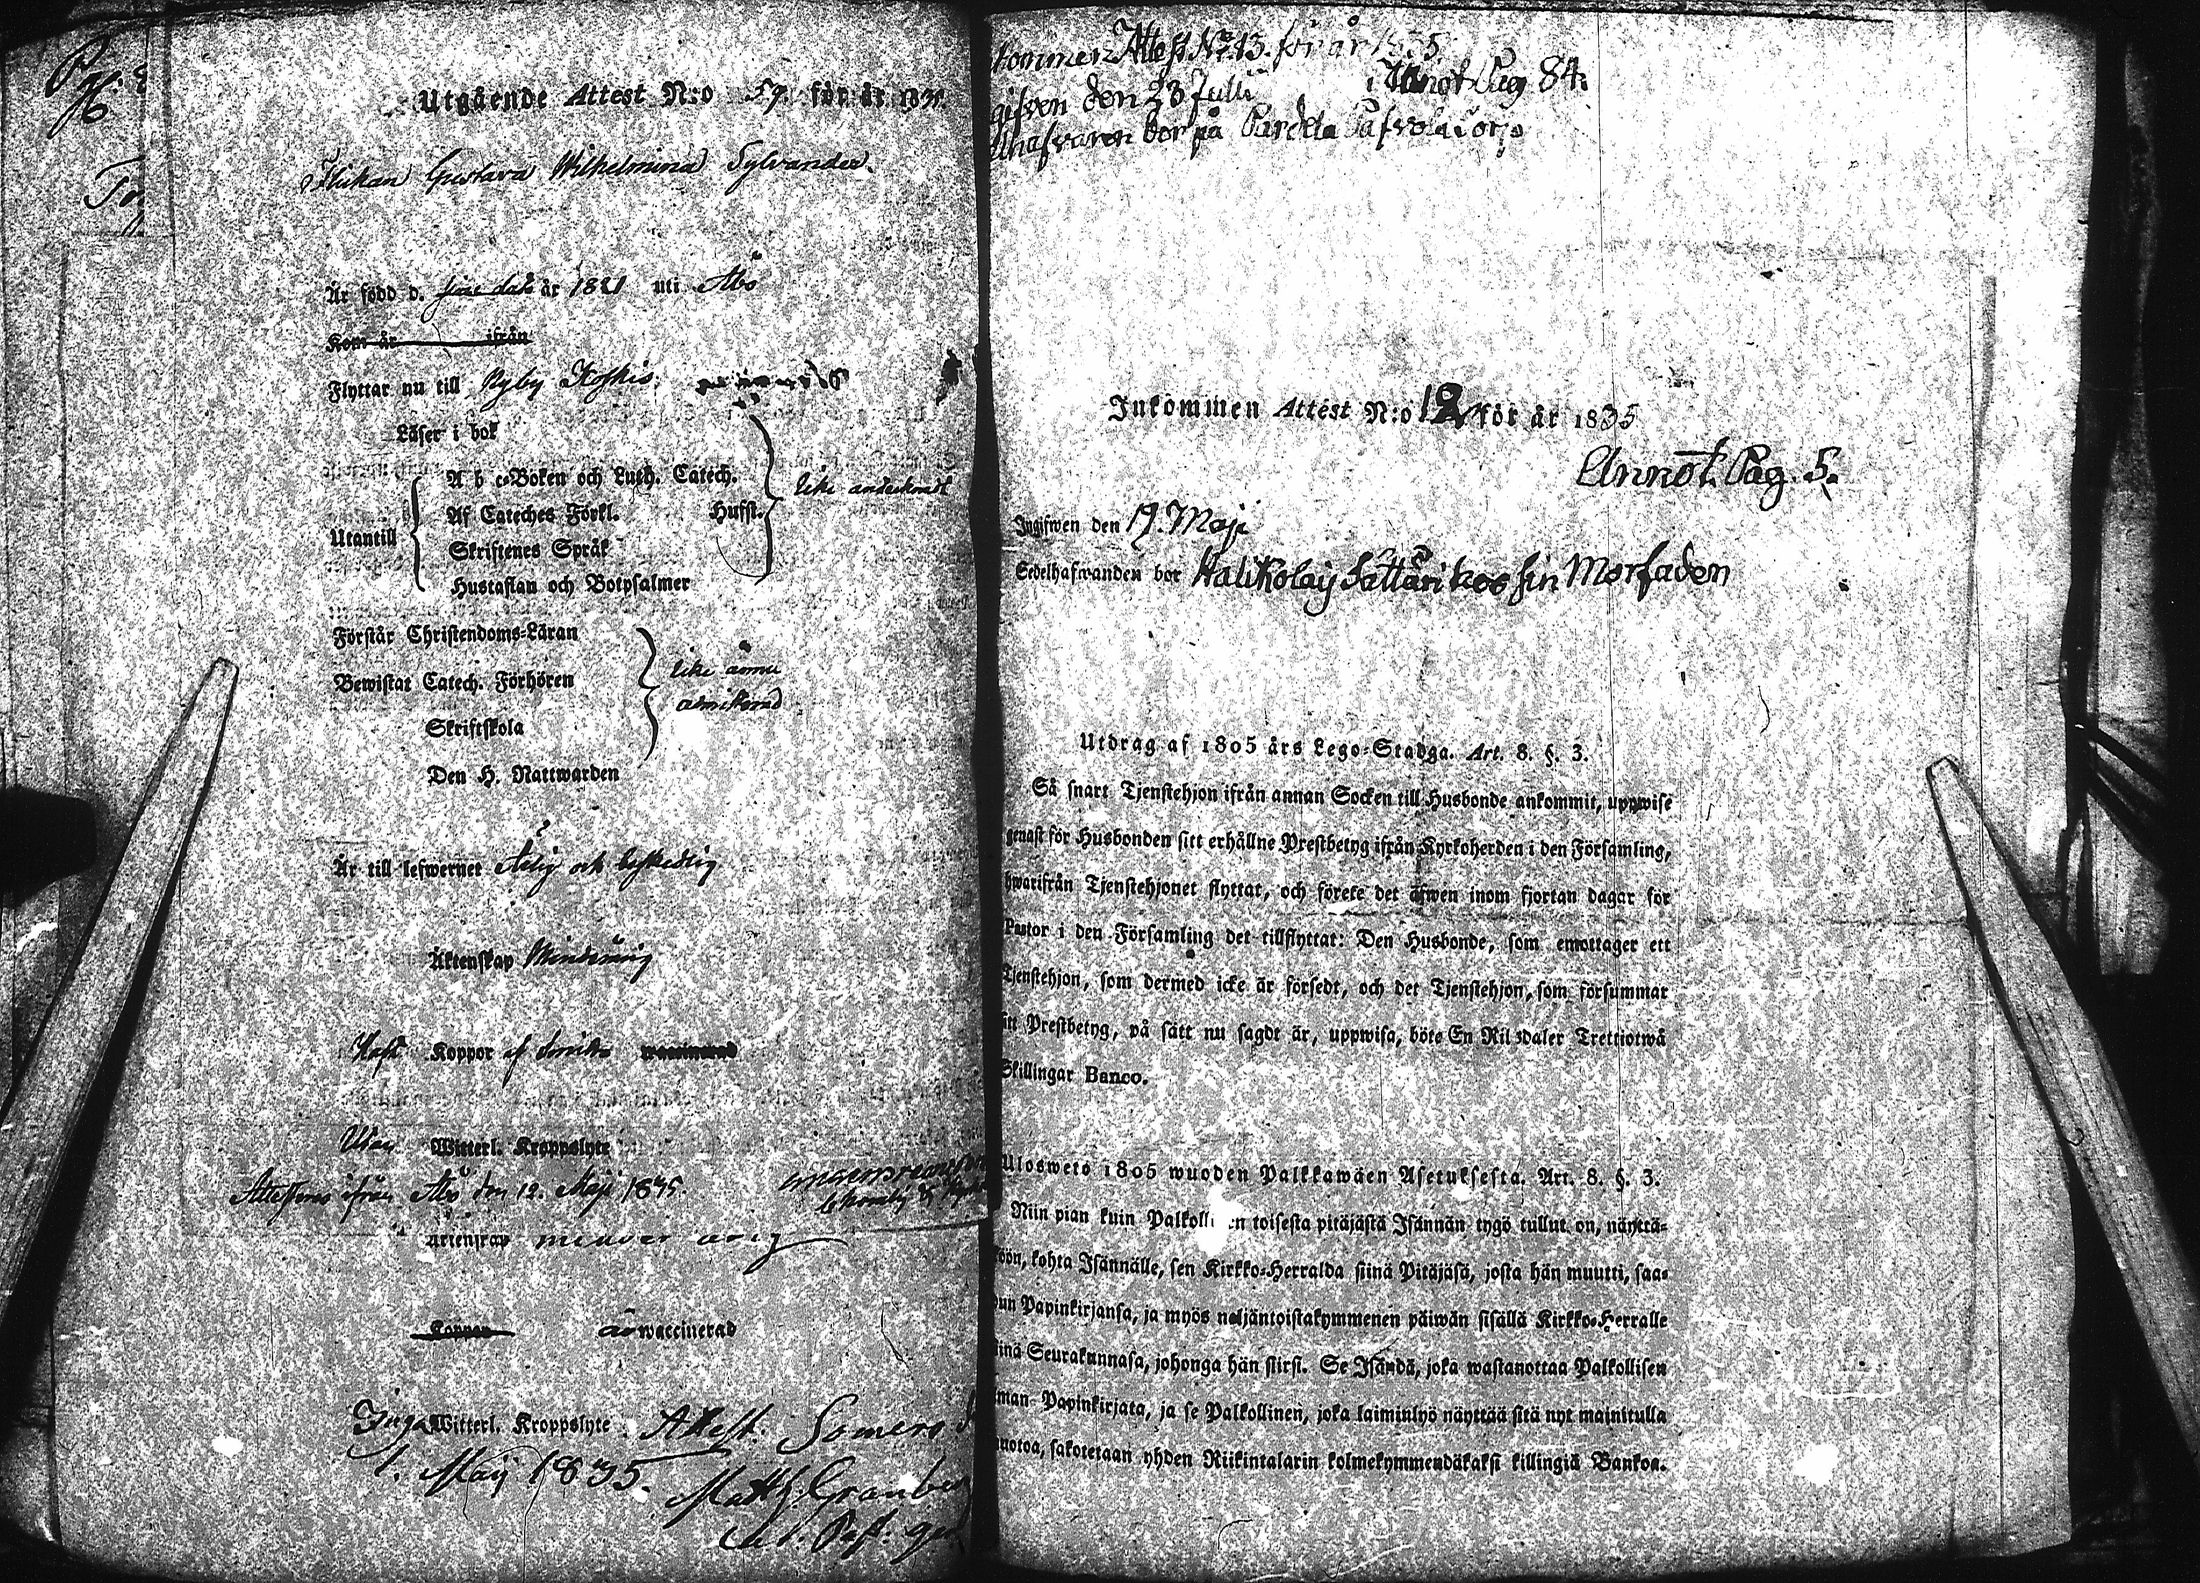 Utgående Attest N:o 59. för år 1835.
Flickan Gustava Wilhelmina Sylvander.
Är född d. år 1821 uti Åbo
Kom år ifrån
Flyttar nu till Nyby Koskis.
Läser i bok
A b c-Boken och Luth. Catech.
Af Cateches Förkl. Hufst.
Utantill
Skriftenes Språk
Hustaflan och Botpsalmer
Förstår Christendoms-Läran
icke ännu
Bewistat Catech. Förhören
admitterad
Skriftskola
Den H. Nattwarden
Är till lefwernet ärlig och beskedlig
Äktenskap Minderårig
Haft Koppor waccinerad
Utan Witterl. Kroppslyte
Attesteras ifrån Åbo den 12. Maji 1835.
Äktenskap minder årig
Koppor är waccinerad
Inga Witterl. Kroppslyte Attest. Somero
1. Maij 1835.
Matth. Granberg
Past.
Attest No. 13. för år 1835.
Annot. Pag 84.
gifven den 23 Julii
bor på
Inkommen Attest N:o 12 för år 1835
Annot. Pag. 5.
Ingifwen den 19. Maji
Sedelhafwanden bor Halikolaij Sattari hos sin Morfaden
Utdrag af 1805 års Lego-Stadga. Art. 8. §. 3.
Så snart Tjenstehjon ifrån annan Socken till Husbonde ankommit, uppwise
genast för Husbonden sitt erhållne Prestbetyg ifrån Kyrkoherden i den Församling,
hwarifrån Tjenstehjonet flyttat, och förete det äfwen inom fjortan dagar för
Pastor i den Församling det tillflyttat: Den Husbonde, som emottager ett
Tjenstehjon, som dermed icke är försedt, och det Tjenstehjon, som försummar
sitt Prestbetyg, på sätt nu sagdt är, uppwisa, böte En Riksdaler Trettiotwå
Skillingar Banco.
Uloswetö 1805 wuoden Palkkawäen Asetuksesta. Art. 8. §. 3.
Niin pian kuin toisesta pitäjästä Isännän tygö tullut on, näyttä-
köön, kohta Isännälle, sen Kirkko-Herralda siinä Pitäjäsä, josta hän muutti, saa-
dun Papinkirjansa, ja myös neljäntoistakymmenen päiwän sisällä Kirkko-Herralle
siinä Seurakunnasa, johonga hän siirsi. Se Isändä, joka wastanottaa Palkollisen
ilman Papinkirjata, ja se Palkollinen, joka laiminlyö näyttää sitä nyt mainitulla
muotoa, sakotetaan yhden Riikintalarin kolmekymmendäkaksi killingiä Bankoa.